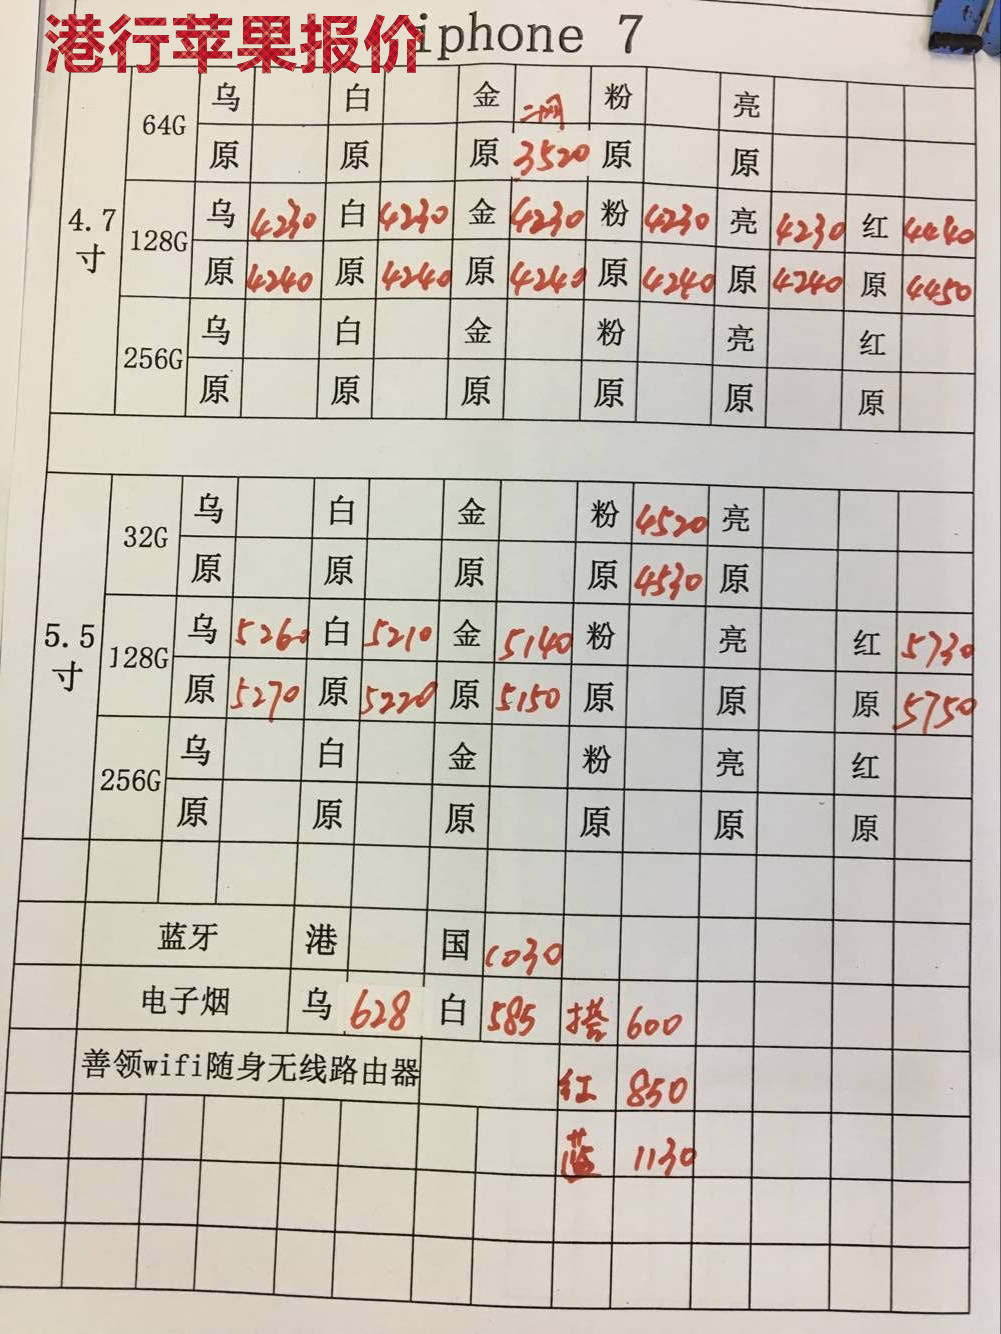 港行苹果报价
iphone 7
4.7寸 64G 乌 白 金 二网 粉 亮
原 原 原 3520 原 原
128G 乌 4230 白 4230 金 4230 粉 4230 亮 4230 红 4440
原 4240 原 4240 原 4240 原 4240 原 4240 原 4450
256G 乌 白 金 粉 亮 红
原 原 原 原 原 原
5.5寸 32G 乌 白 金 粉 4520 亮
原 原 原 原 4530 原
128G 乌 5260 白 5210 金 5140 粉 亮 红 5730
原 5270 原 5220 原 5150 原 原 原 5750
256G 乌 白 金 粉 亮 红
原 原 原 原 原 原
蓝牙 港 国 1030
电子烟 乌 628 白 585 搭 600
善领wifi随身无线路由器 红 850
蓝 1130